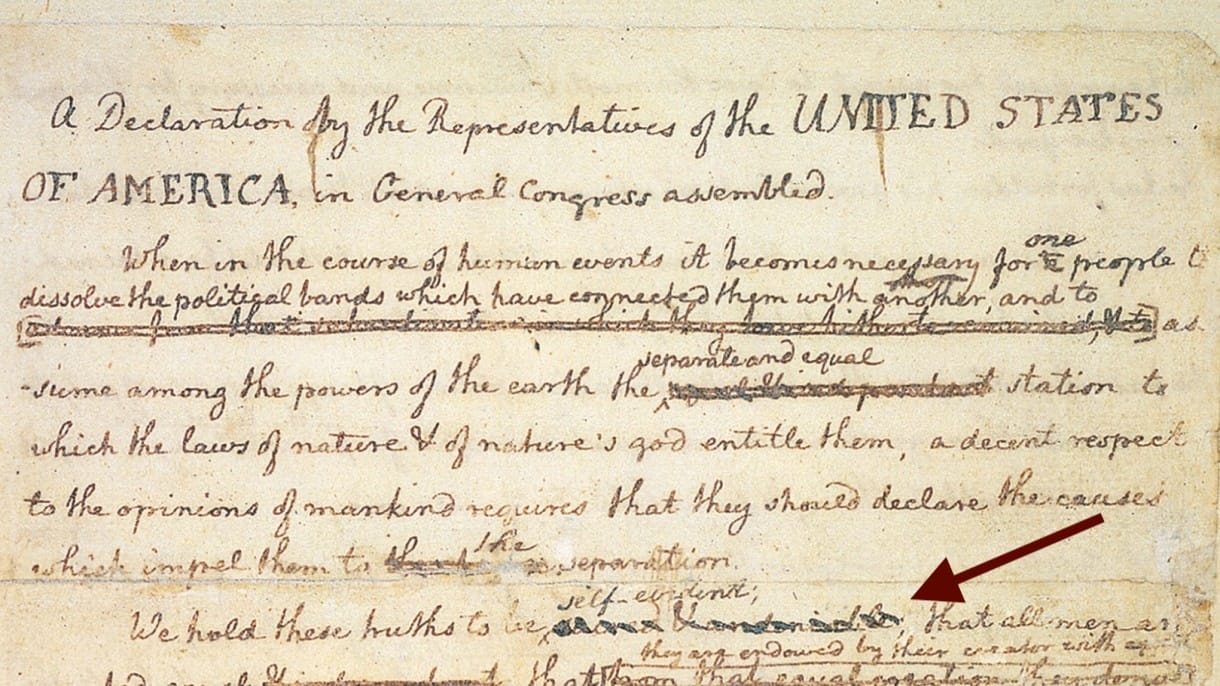 A Declaration by the Representatives of the UNITED STATES
OF AMERICA, in General Congress assembled.
one
When in the course of human events it becomes necessary for a people t
dissolve the political bands which have connected them with another, and to
that subordination in which they have hitherto remained, & to as
separate and equal
-sume among the powers of the earth the equal & independant station to
which the laws of nature & of nature's god entitle them, a decent respect
to the opinions of mankind requires that they should declare the causes
the
which impel them to separation.
self-evident;
We hold these truths to be sacred & undeniable, that all men ar
they are endowed by their creator with
that from that equal creation they